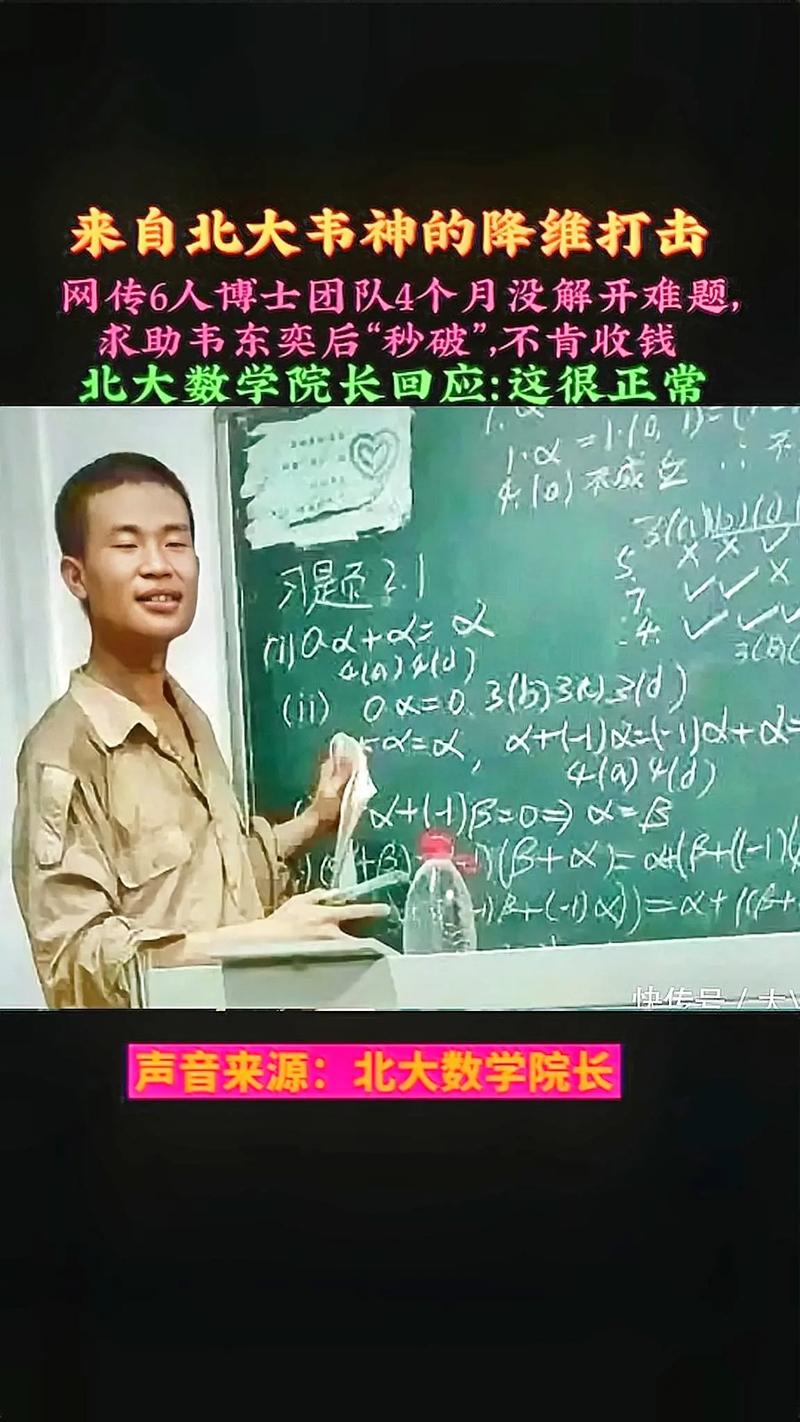 来自北大韦神的降维打击
网传6人博士团队4个月没解开难题,
求助韦东奕后“秒破”,不肯收钱
北大数学院长回应:这很正常
4.(a)不成立 ∴ 不
习题2.1
(i) 0α+α=α
4(a)4(d)
(ii) 0α=0. 3(b)3(c)3(d)
α=α, α+(-1)α=(-1)α+α=
4(a)4(d)
α+(-1)β=0⇒α=β
(β+α)=α+(β+((-1)
β+(-1)α))=α+((β+
5.
××✓
7.
✓✓×
4.
✓✓✓
快传号/大
声音来源：北大数学院长